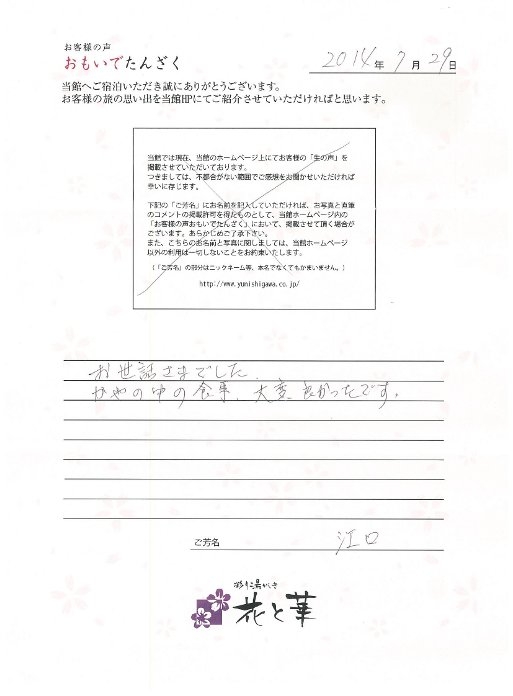 お客様の声
おもいでたんざく
2014年7月29日
当館へご宿泊いただき誠にありがとうございます。
お客様の旅の思い出を当館HPにてご紹介させていただければと思います。
当館では現在、当館のホームページ上にてお客様の「生の声」を
掲載させていただいております。
つきましては、不都合がない範囲でご感想をお聞かせいただければ
幸いに存じます。
下記の「ご芳名」にお名前を記入していただければ、お写真と直筆
のコメントの掲載許可を得たものとして、当館ホームページ内の
「お客様の声おもいでたんざく」において、掲載させて頂く場合が
ございます。あらかじめご了承下さい。
また、こちらのお名前と写真に関しましては、当館ホームページ
以外の利用は一切しないことをお約束いたします。
(「ご芳名」の部分はニックネーム等、本名でなくてもかまいません。)
http://www.yunishigawa.co.jp/
お世話さまでした、
かやの中の食事、大変良かったです。
ご芳名 江口
花と華